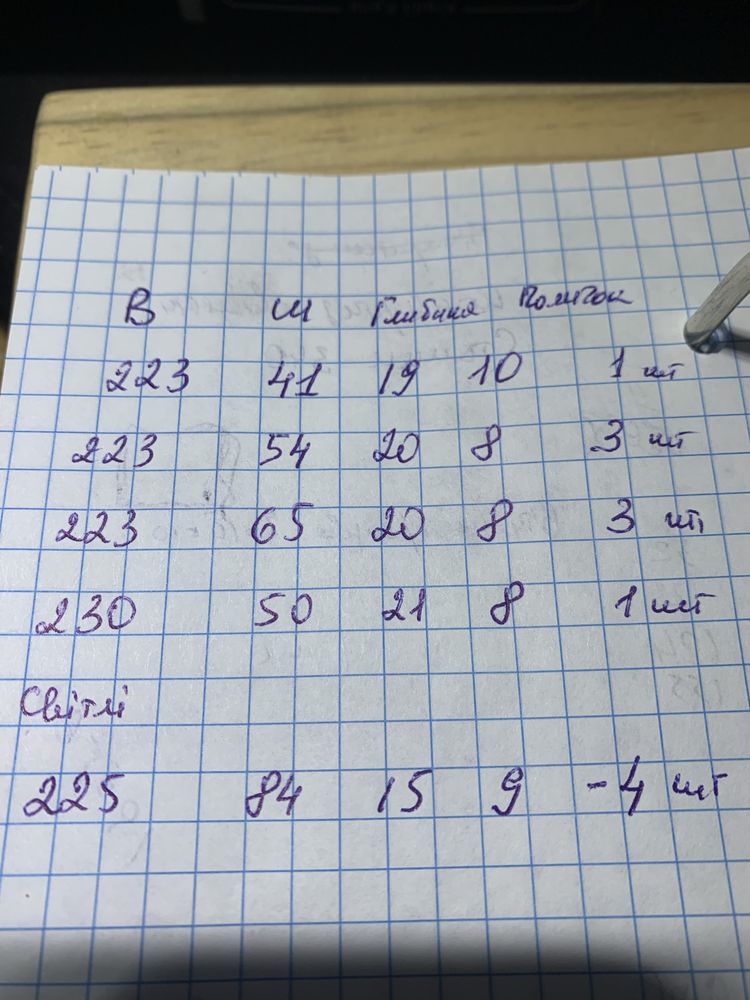 В Ш Глибина Поличок
223 41 19 10 1 шт
223 54 20 8 3 шт
223 65 20 8 3 шт
230 50 21 8 1 шт
Світлі
225 84 15 9 - 4 шт